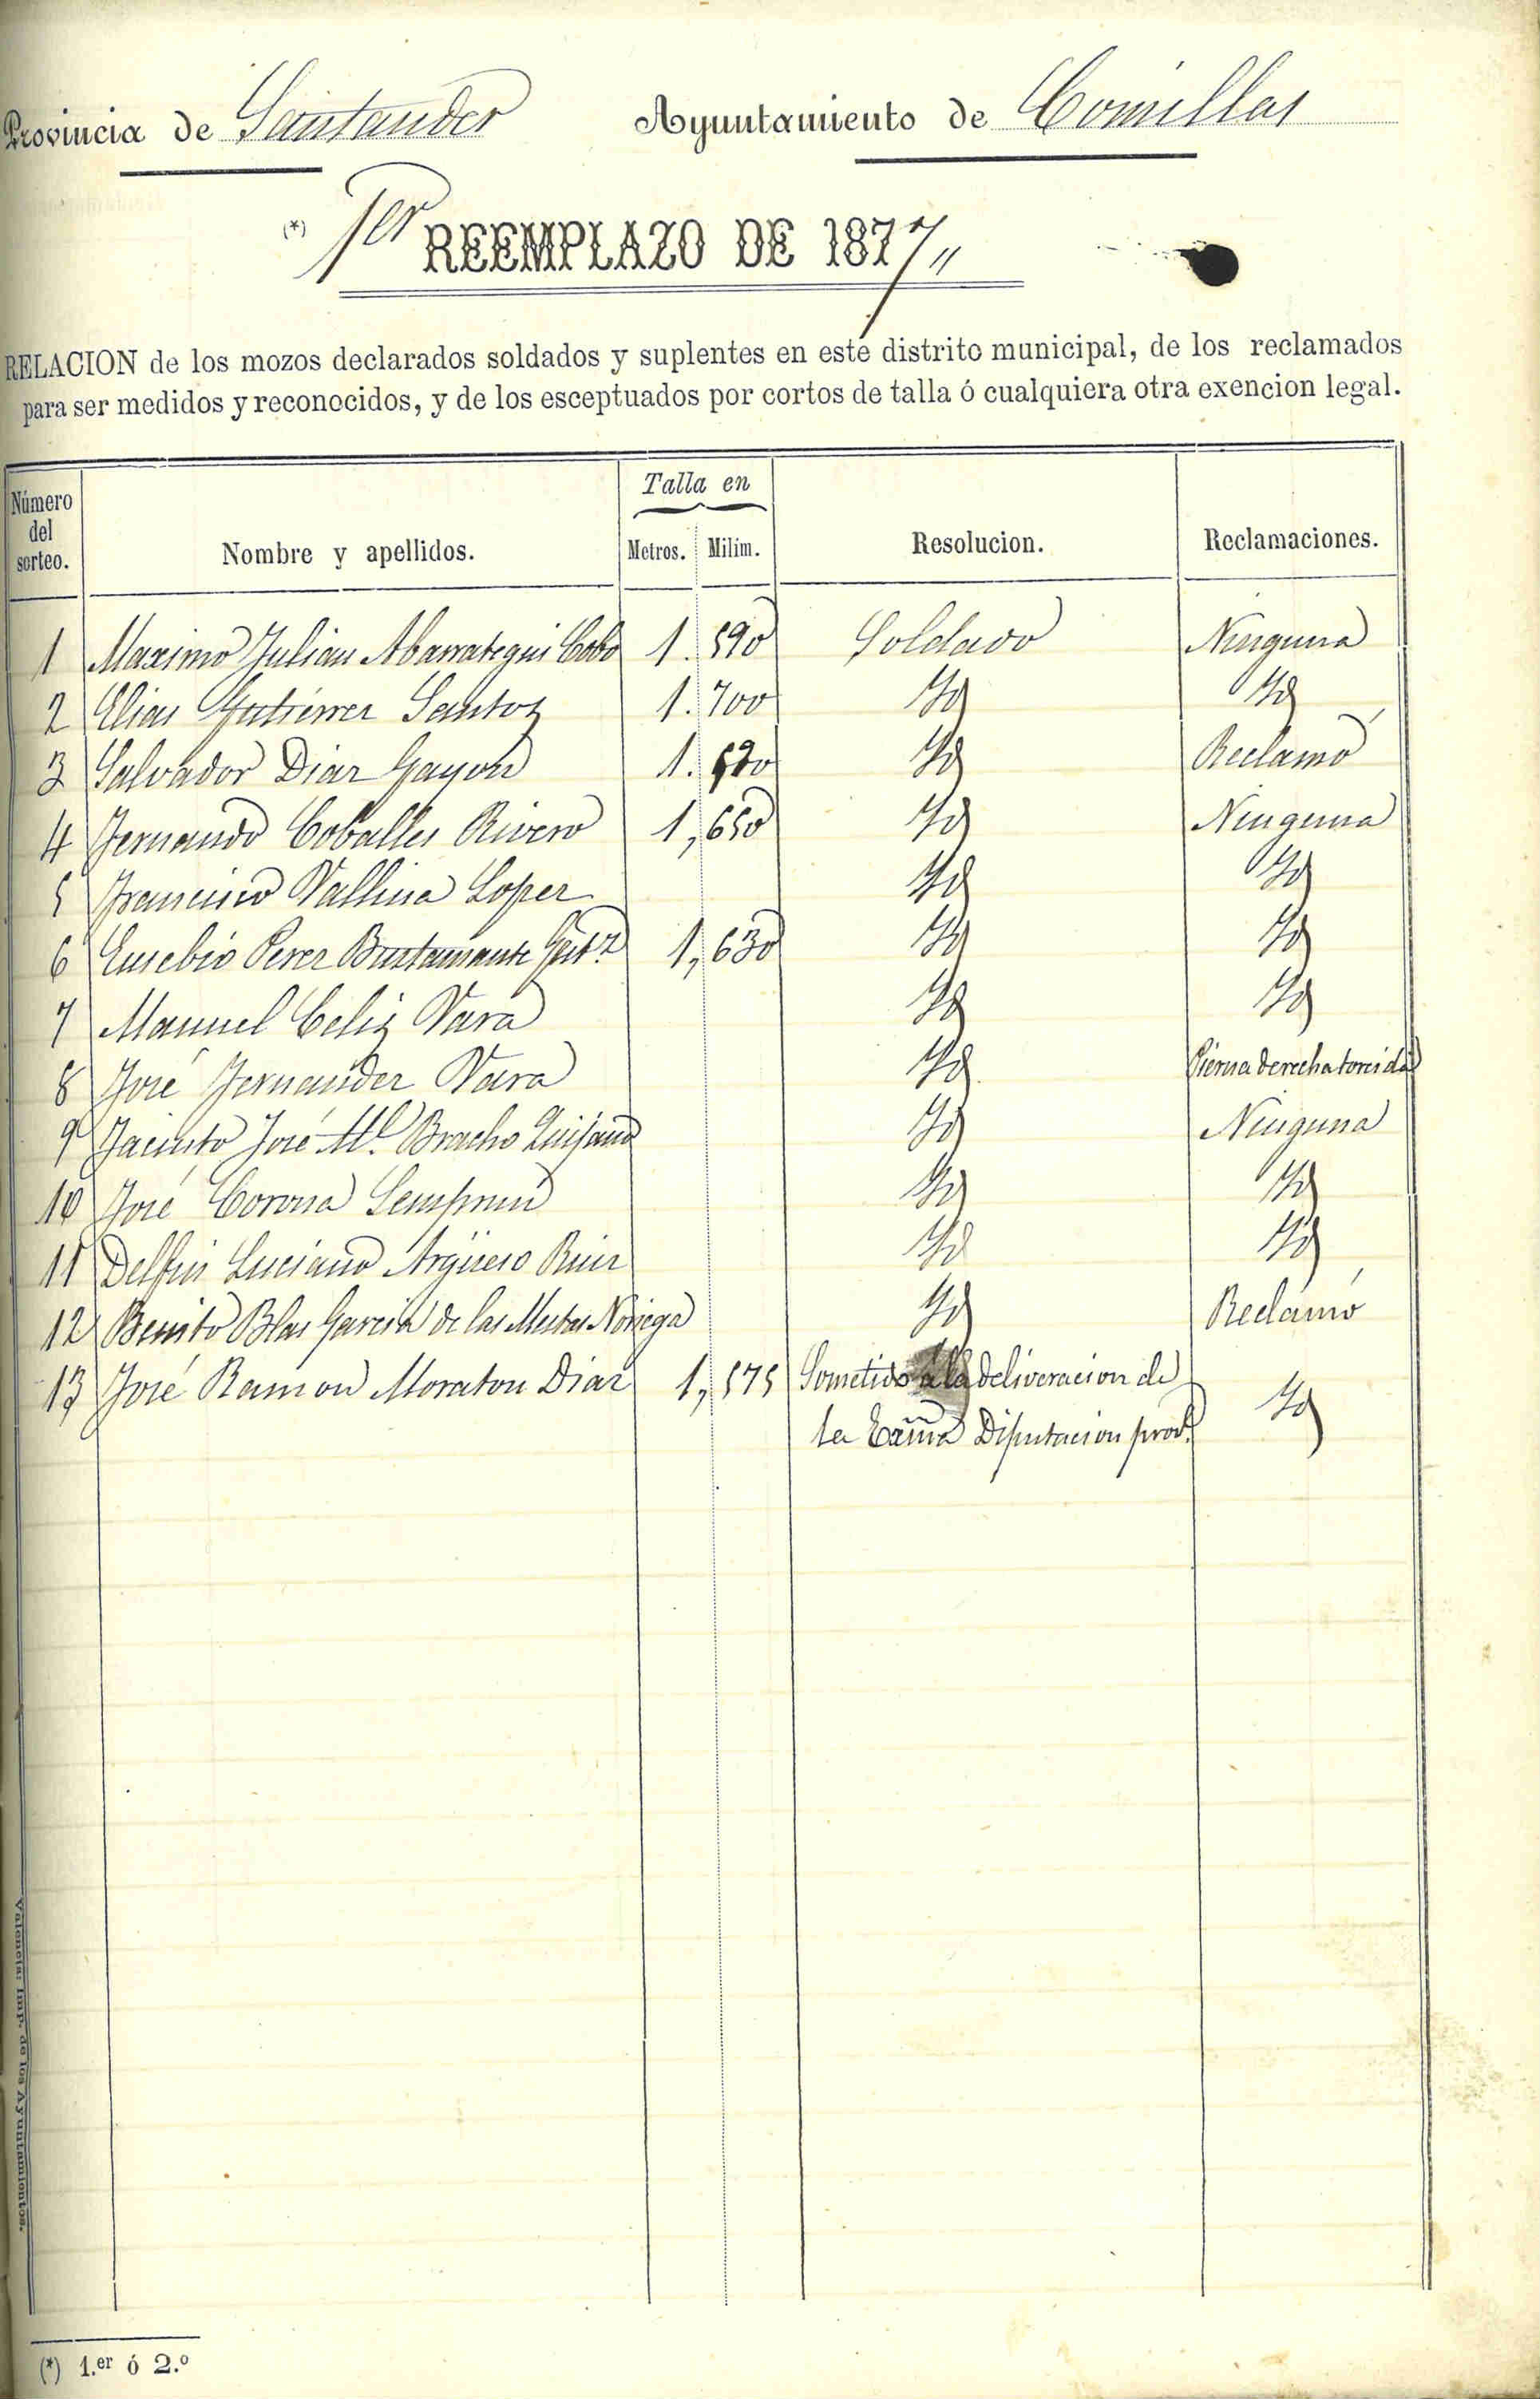 Provincia de Santander Ayuntamiento de Comillas
(*) 1er REEMPLAZO DE 1877„
RELACION de los mozos declarados soldados y suplentes en este distrito municipal, de los reclamados
para ser medidos y reconocidos, y de los esceptuados por cortos de talla ó cualquiera otra exencion legal.
Número del sorteo. Nombre y apellidos. Talla en Metros. Milím. Resolucion. Reclamaciones.
1 Maximo Julian Abarrategui Cobo 1. 590 Soldado Ninguna
2 Elias Gutierrez Santos 1. 700 Id Id
3 Salvador Diaz Gayon 1. Id Reclamó
4 Fernando Coballes Rivero 1, 650 Id Ninguna
5 Francisco Vallina Lopez Id Id
6 Eusebio Perez Bustamante Gut.z 1, 630 Id Id
7 Manuel Celiz Vara Id Id
8 José Fernandez Vara Id Pierna derecha torcida
9 Jacinto José M.ª Bracho Quijano Id Ninguna
10 José Corona Semprun Id Id
11 Delfin Luciano Argüeso Ruiz Id Id
12 Benito Blas Garcia de las Mestas Noriega Id Reclamó
13 José Ramon Moraton Diaz 1, 575 Sometido a la deliveracion de
la Exm̃a Diputacion prov.l Id
Valencia: Imp. de los Ayuntamientos.
(*) 1.er ó 2.º